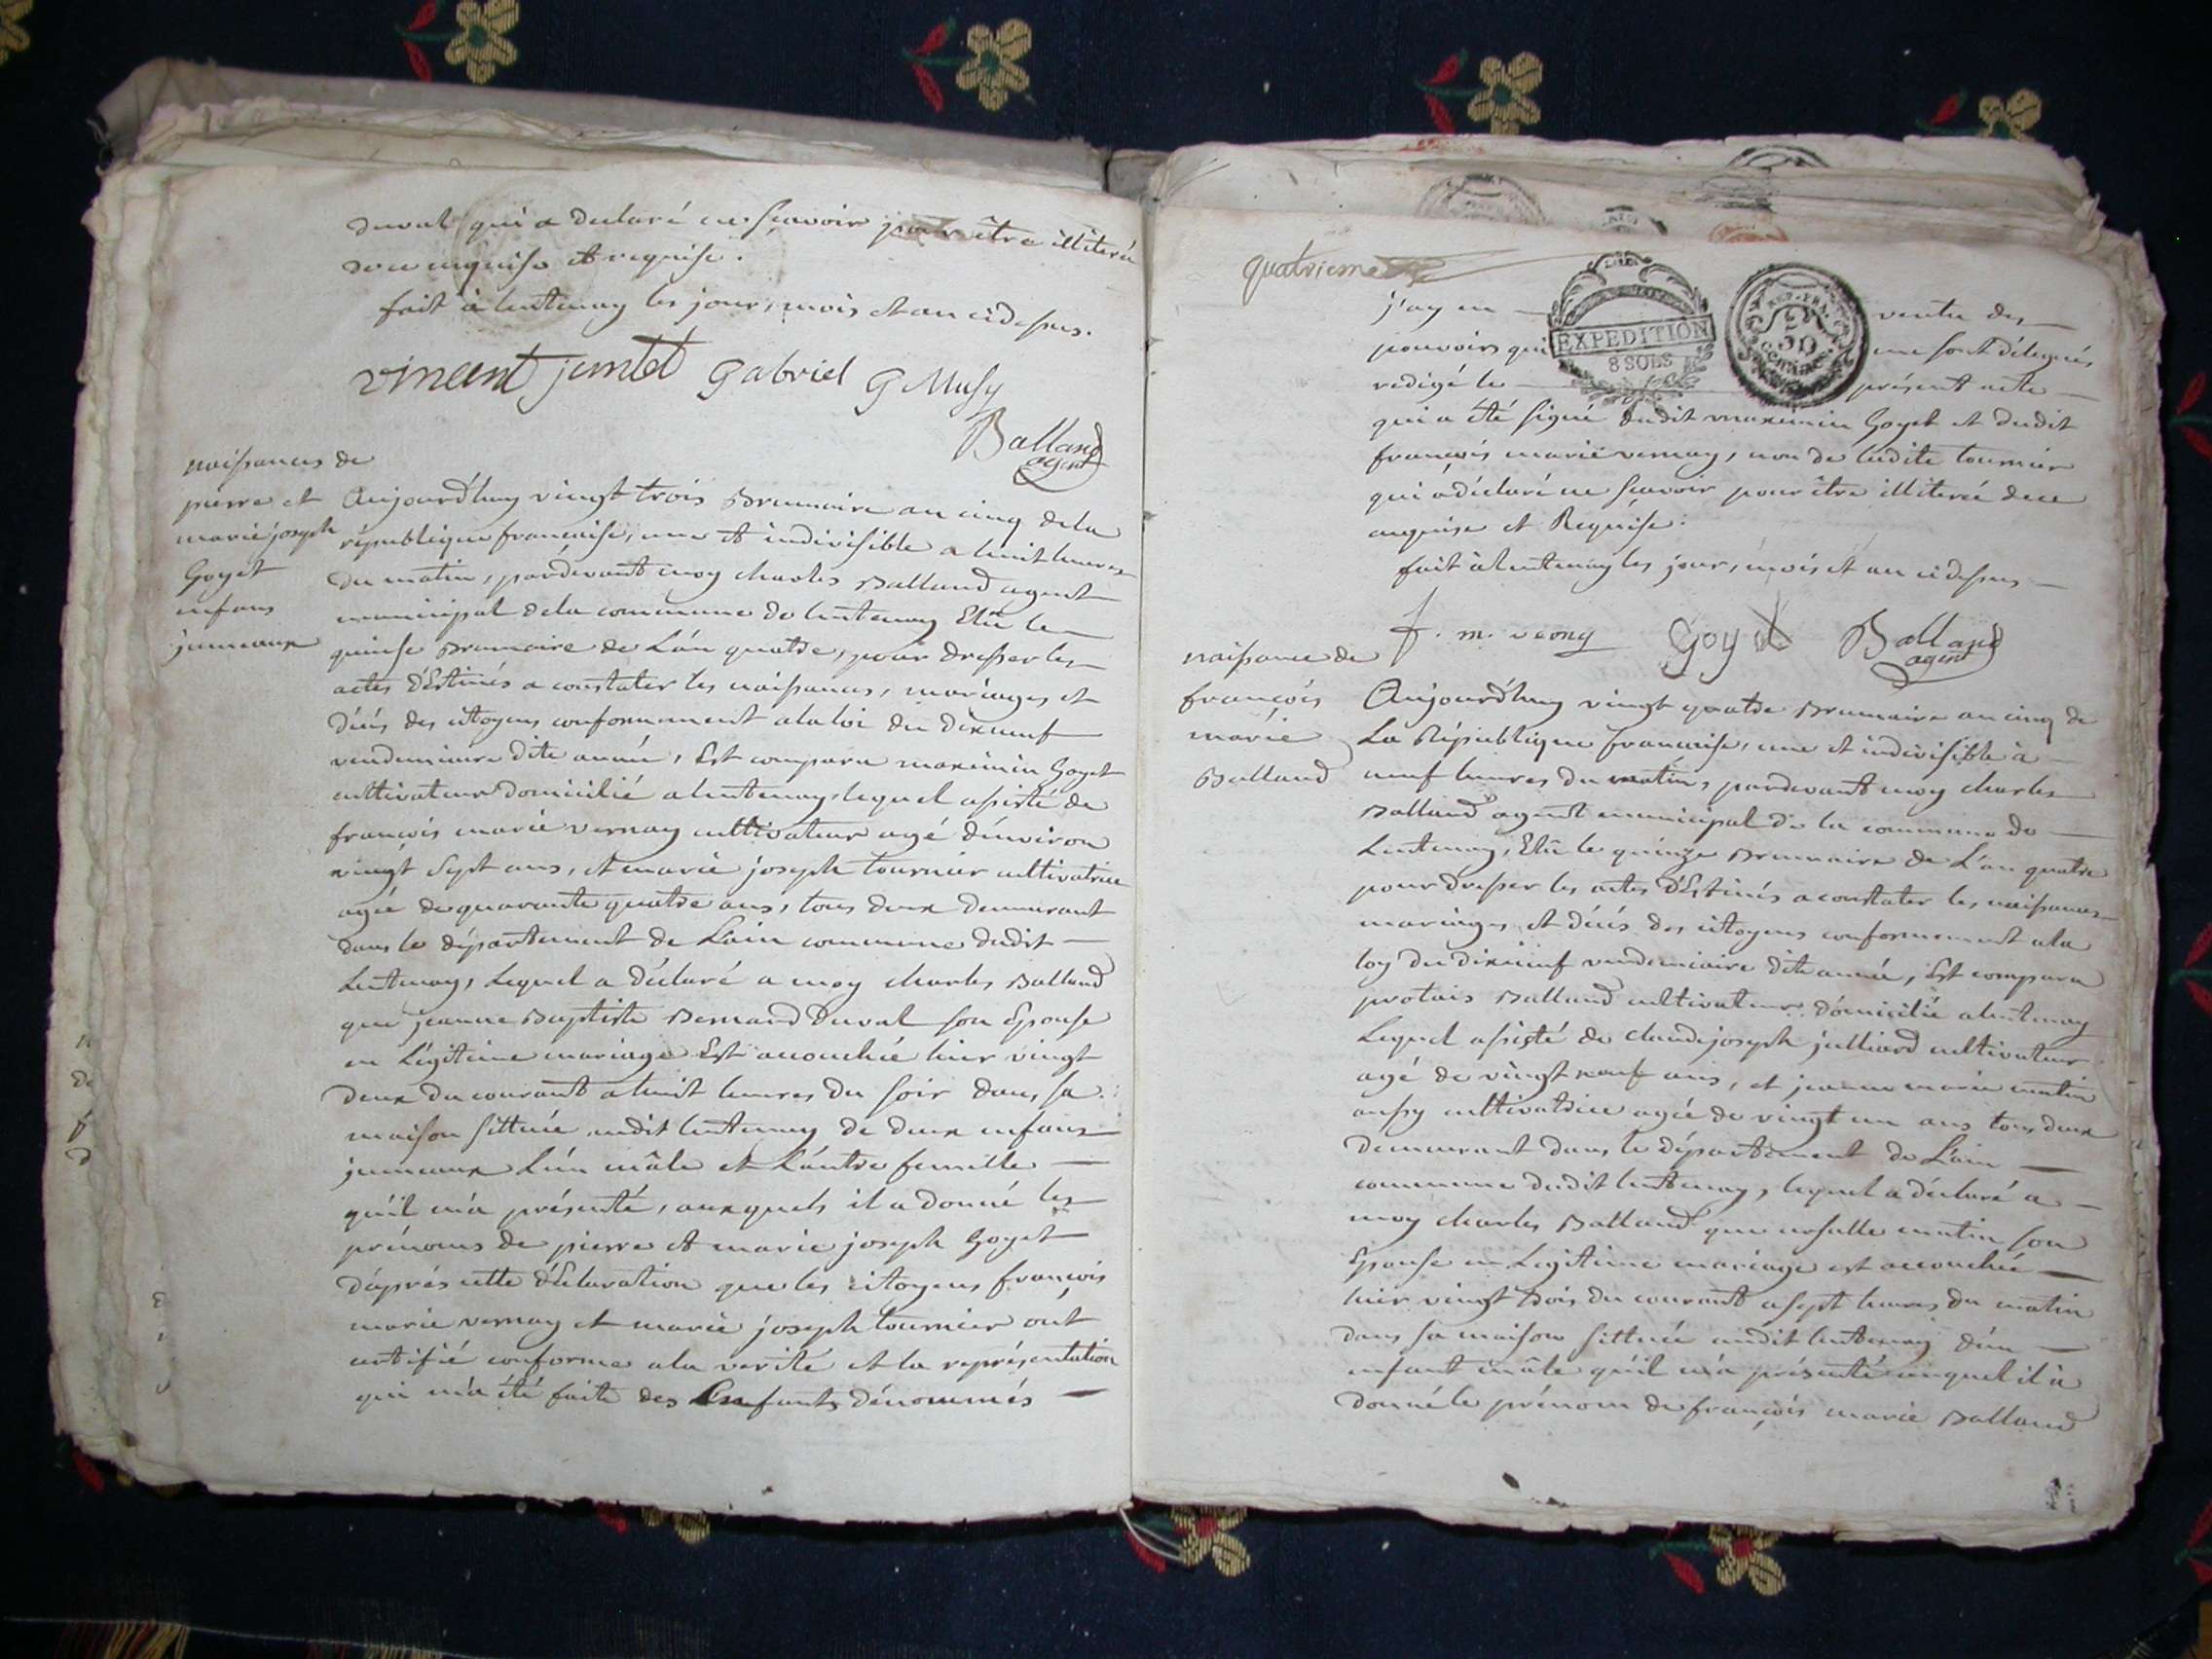 duval qui a declaré ne sçavoir pour être illiteré
de ce enquise et requise.
fait à lentenay les jour, mois et an cidessus.
vincent jantet gabriel G Musy
Balland
agent
naissances de
pierre et
marie joseph
Goyet
enfans
jumeaux
Aujourd'huy vingt trois Brumaire an cinq de la
république francaise, une et indivisible a huit heures
du matin, pardevant moy charles Balland agent
municipal de la commune de lentenay Elû le
quinse Brumaire de L'an quatre, pour dresser les
actes d'Estinés a constater les naissances, mariages et
décés des citoyens conformement a la loi du dixneuf
vendemiaire dite année, Est comparu maximin Goyet
cultivateur domicilié a lentenay, lequel assisté de
francois marie vernay cultivateur agé d'environ
vingt sept ans, et marie joseph tournier cultivatrice
agée de quarante quatre ans, tous deux demeurant
dans le département de L'ain commune dudit
Lentenay, Lequel a déclaré a moy charles Balland
que jeanne Baptiste Bernard Duval son Epouse
en Légitime mariage Est accouchée hier vingt
deux du courant a huit heures du soir dans sa
maison sittuée audit lentenay de deux enfans
jumeaux L'un mâle et L'autre femelle
qu'il m'a présenté, auxquels il a donné les
prénoms de pierre et marie joseph Goyet
d'aprés cette d'Eclaration que les citoyens françois
marie vernay et marie joseph tournier ont
certifié conforme a la verité et la représentation
qui m'a été faite des Enfants dénommés
quatrieme
j'ay en vertu des
pouvoirs qui me sont délegués
redigé le présent acte
EXPEDITION
8 SOLS
REP. FRA.
50
CENTIMES
qui a été signé dudit maximin Goyet et dudit
françois marie vernay, non de ladite tournier
qui a déclaré ne sçavoir pour être illiterée de ce
enquise et Requise.
fait à lentenay les jour, mois et an cidessus
f. m. Goyet Balland
agent
naissance de
françois
marie
Balland
Aujourd'huy vingt quatre Brumaire an cinq de
La République francaise, une et indivisible à
neuf heures du matin, pardevant moy charles
Balland agent municipal de la commune de
Lentenay, Elû le quinze Brumaire de L'an quatre
pour dresser les actes d'Estinés a constater les naissances
mariages et décés des citoyens conformement a la
loy du dixneuf vendemiaire dite année, Est comparu
protais Balland cultivateur domicilié a lentenay
Lequel assisté de claude joseph julliard cultivateur
agé de vingt neuf ans, et jeanne marie mutin
aussy cultivatrice agée de vingt un ans tous deux
demeurant dans le département de L'ain
commune dudit lentenay, lequel a déclaré a
moy charles Balland que ursulle mutin son
Epouse en Légitime mariage est accouchée
hier vingt trois du courant a sept heures du matin
dans sa maison sittuée audit lentenay d'un
enfant mâle qu'il m'a présenté auquel il a
donné le prénom de françois marie Balland